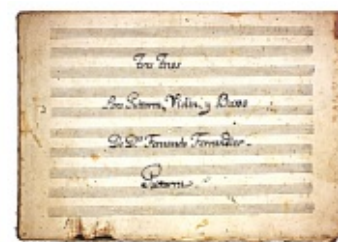 Tres Trios
Para Guitarra, Violin, y Baxo
De Dn. Fernando Ferrandier.
Guitarra